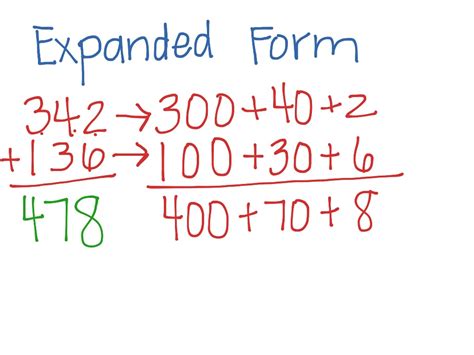 Expanded Form
342→300+40+2
+136→100+30+6
478 400+70+8